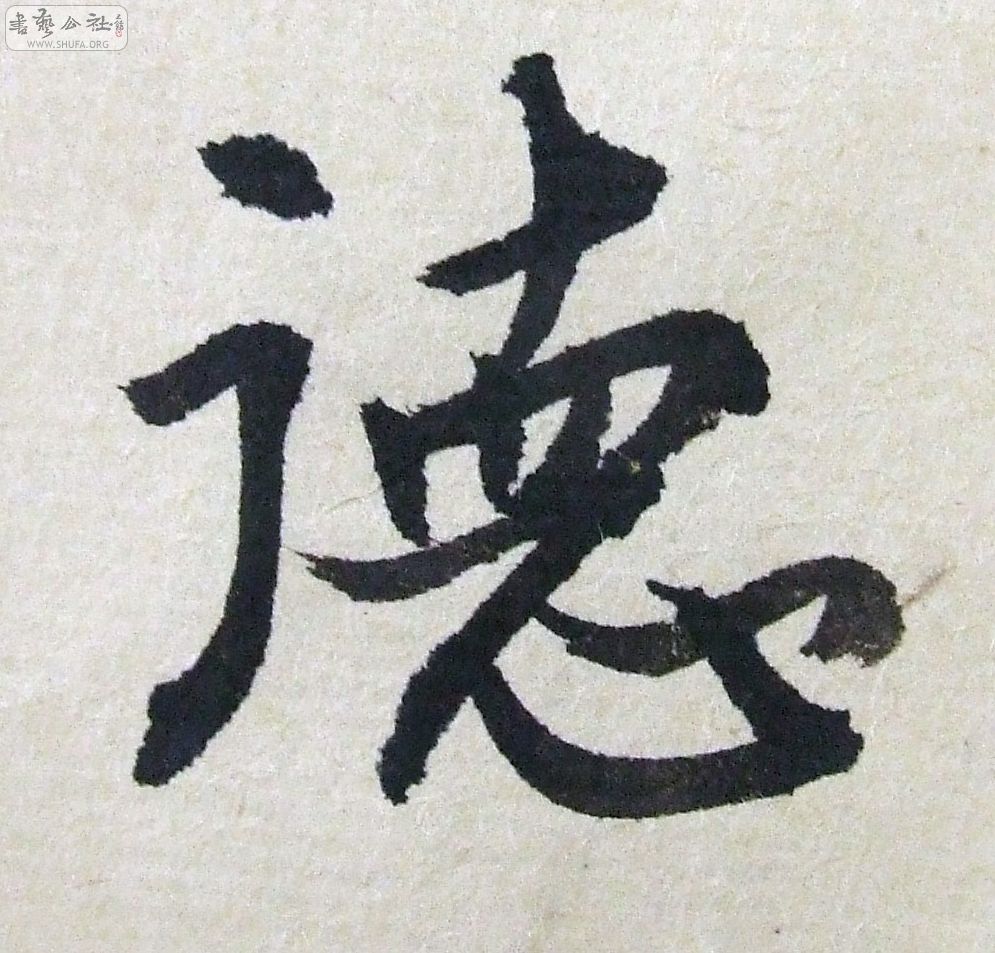 書藝公社
WWW.SHUFA.ORG
德